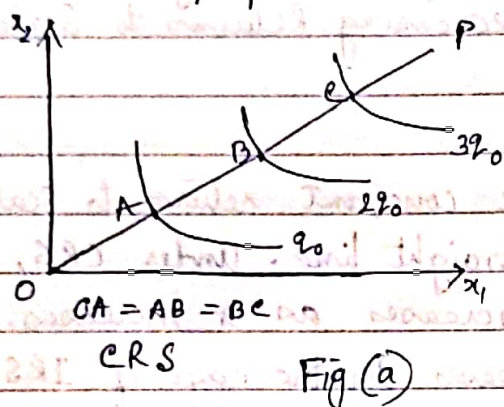 x₂
P
C
3q₀
B
2q₀
A
q₀
O
x₁
OA = AB = BC
CRS
Fig (a)